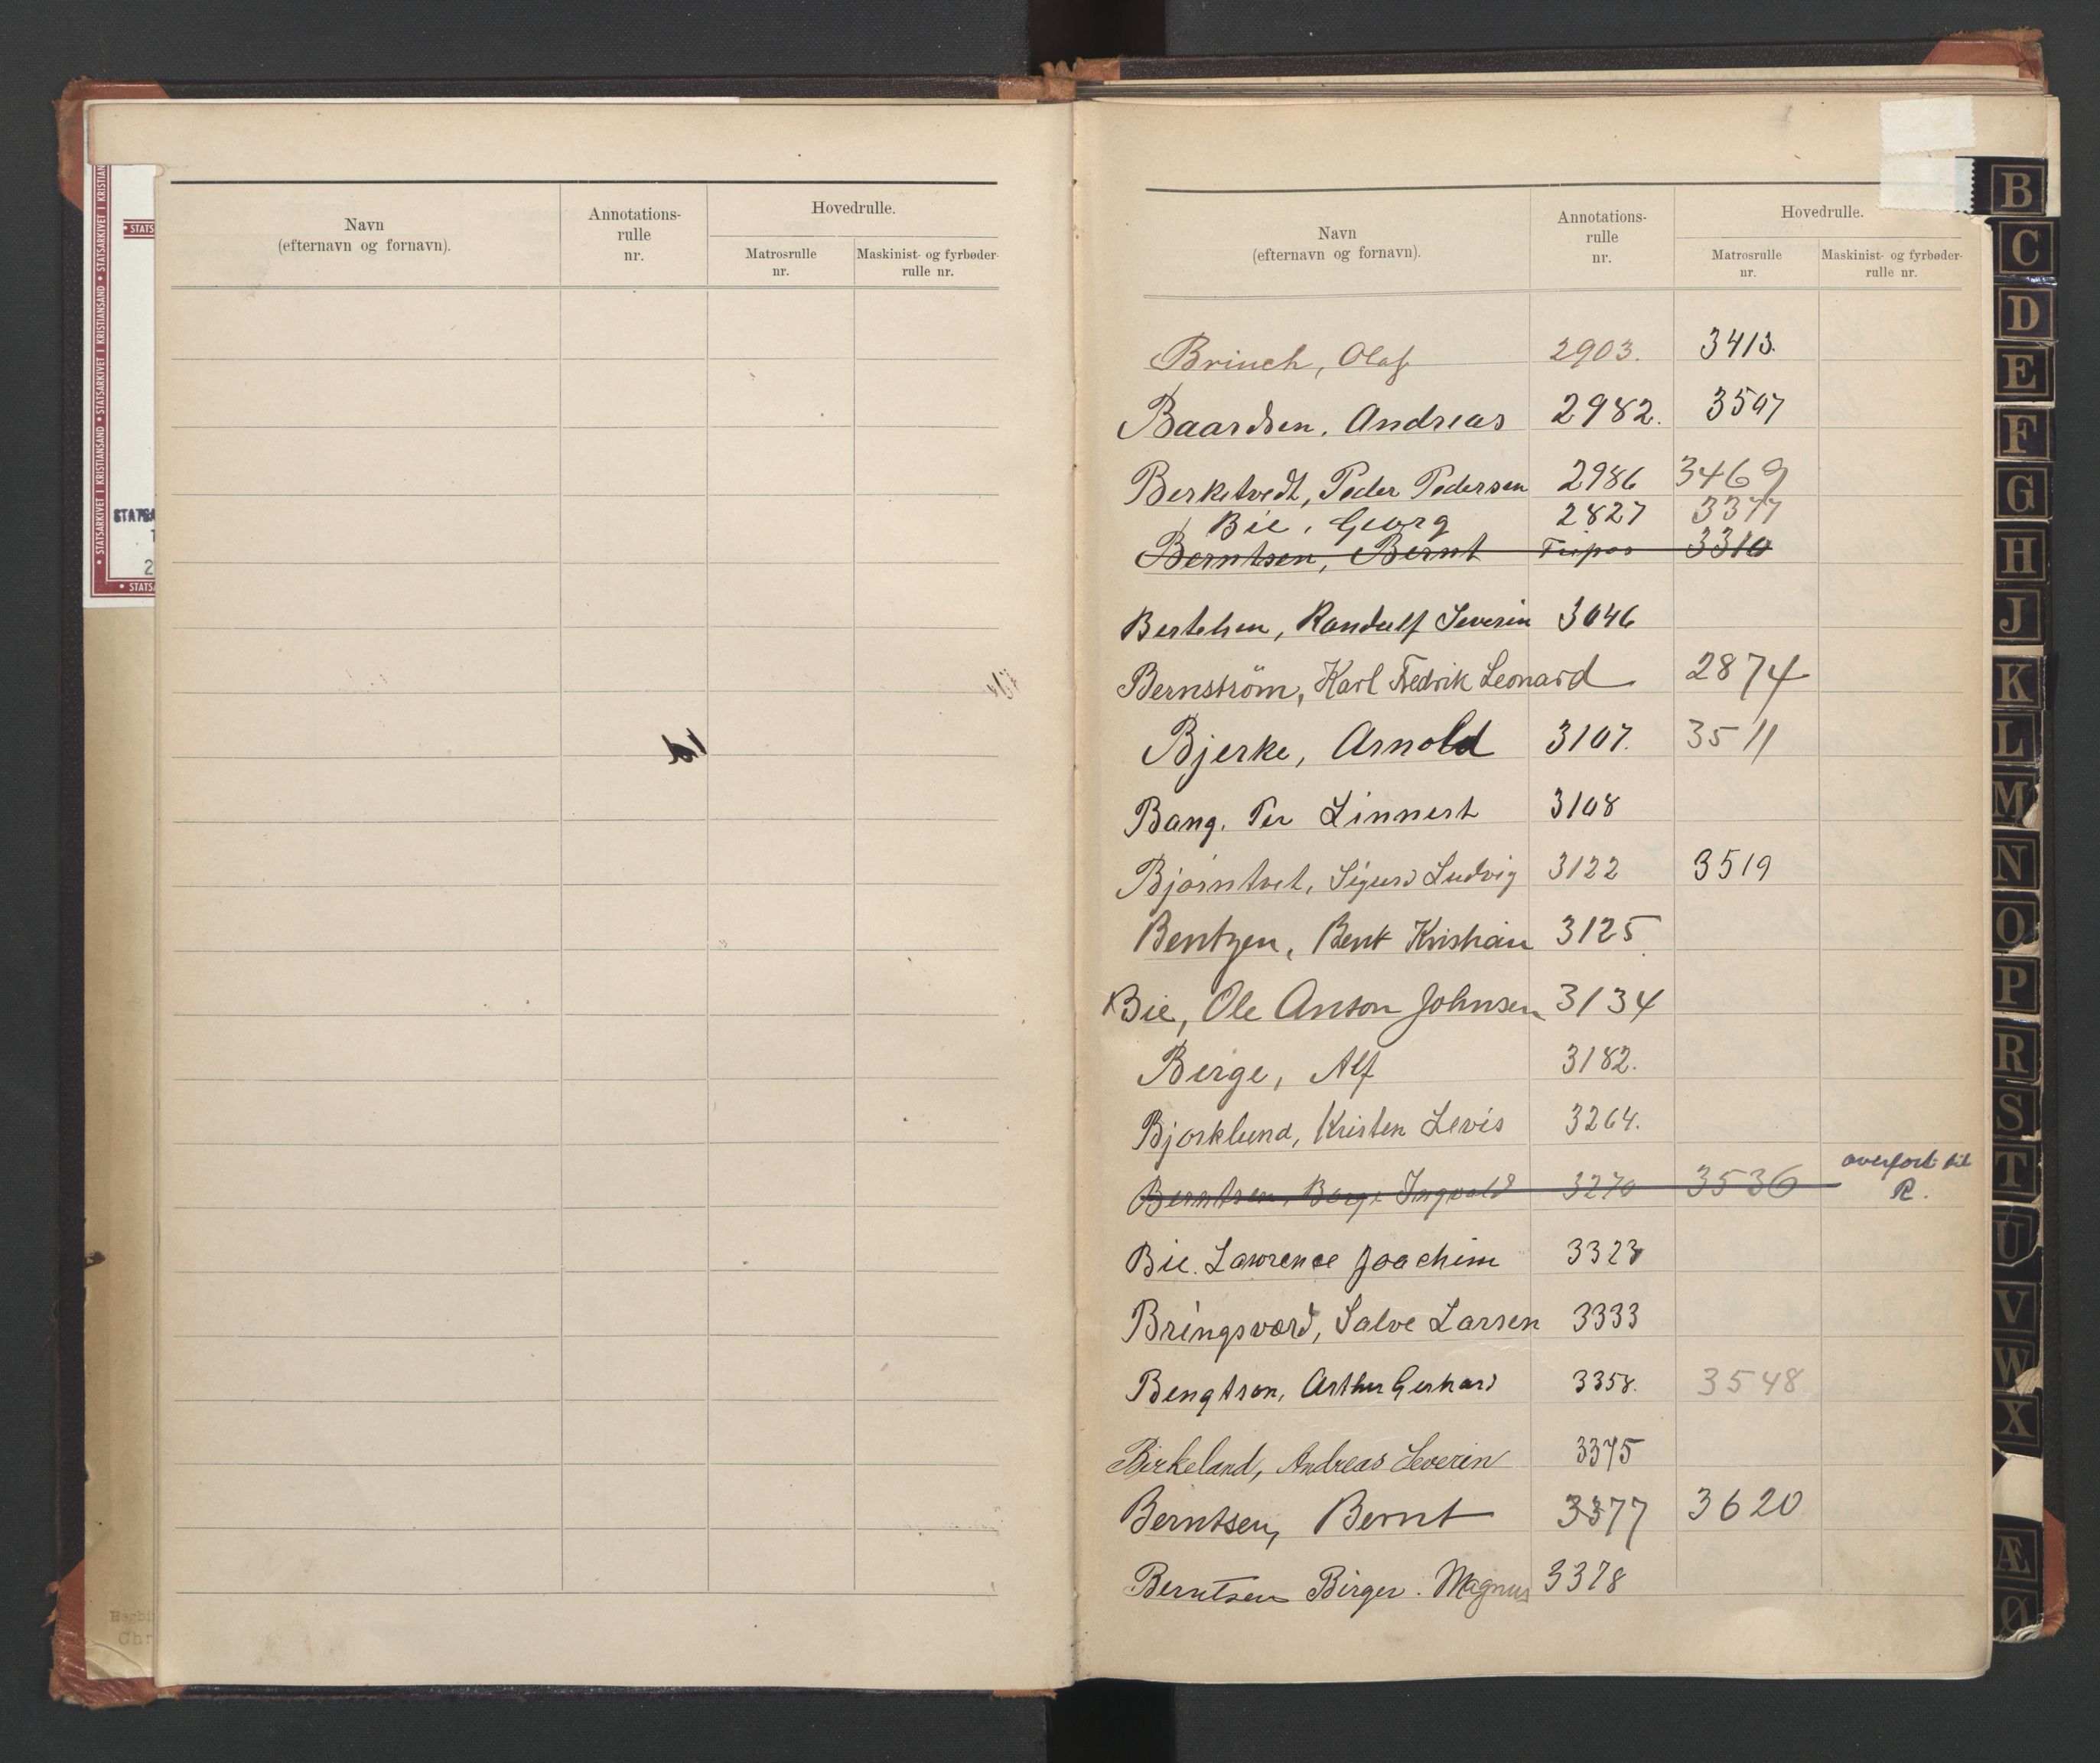 Navn
(efternavn og fornavn).
Annotations-
rulle
nr.
Hovedrulle.
Matrosrulle
nr.
Maskinist- og fyrbøder-
rulle nr.
• STATSARKIVET I KRISTIANSAND • STATSARKIVET I KRISTIANSAND • STATSARKIVET I KRISTIAN
Navn
(efternavn og fornavn).
Annotations-
rulle
nr.
Hovedrulle.
Matrosrulle
nr.
Maskinist- og fyrbøder-
rulle nr.
Brinch, Olaf 2903. 3413.
Baardsen, Andreas 2982. 3507
Berketvedt, Peder Pedersen 2986 3469
Bie, Georg 2827 3377
Berntsen, Bernt 3310
Bertelsen, Randulf Severin 3046
Bernström, Karl Fredrik Leonard 2874
Bjerke, Arnold 3107. 3511
Bang, Per Linnert 3108
Bjørntvet, Sigurd Ludvig 3122 3519
Bentzen, Bent Kristian 3125
Bie, Ole Anton Johnsen 3134
Berge, Alf 3182.
Bjorklund, Kristen Levis 3264.
Berntsen, Borge Ingvald 3270 3536 overført til
R.
Bie. Lawrence Joachim 3323
Bringsværd, Salve Larsen 3333
Bengtson, Arthur Gerhard 3358. 3548
Birkeland, Andreas Severin 3375
Berntsen, Bernt 3377 3620
Berntsen Birger. Magnus 3378
B
C
D
E
F
G
H
J
K
L
M
N
O
P
R
S
T
U
V
W
X
Æ
Ø